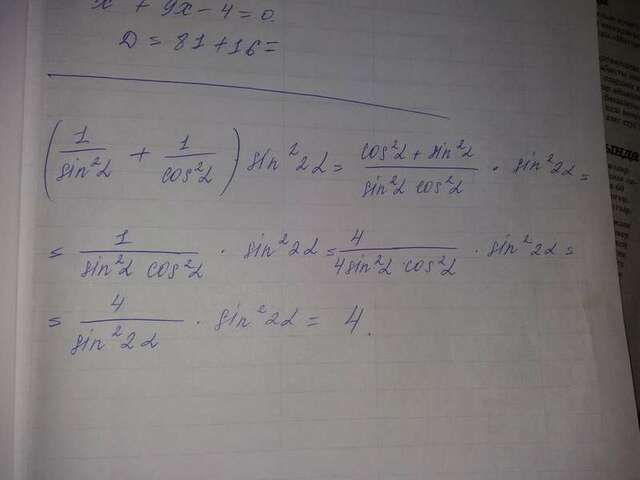 x + 9x - 4 = 0
D = 81 + 16 =
(1/sin²α + 1/cos²α) sin²2α = (cos²α + sin²α)/(sin²α cos²α) · sin²2α =
= 1/(sin²α cos²α) · sin²2α = 4/(4sin²α cos²α) · sin²2α =
= 4/sin²2α · sin²2α = 4.